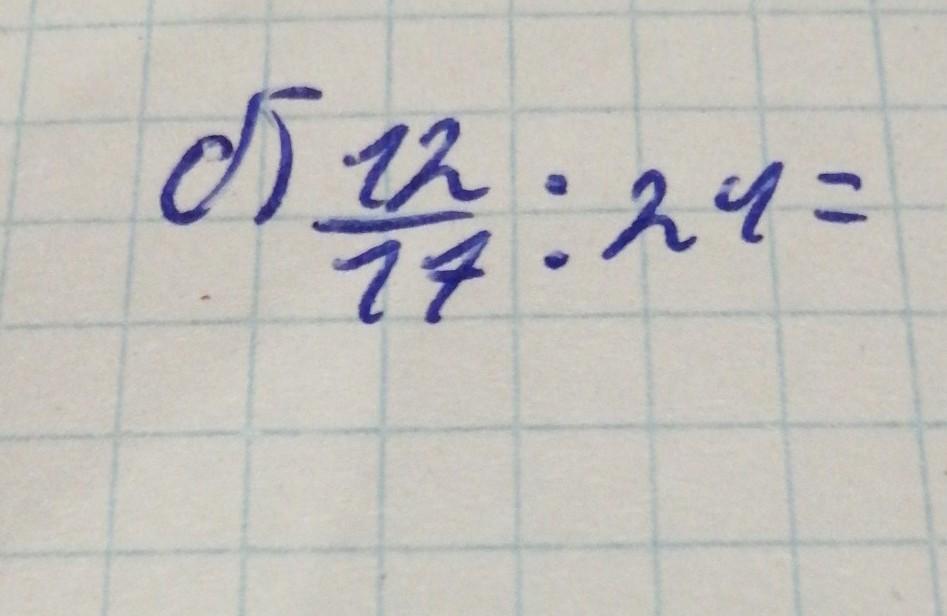 б) 12/17 : 24 =